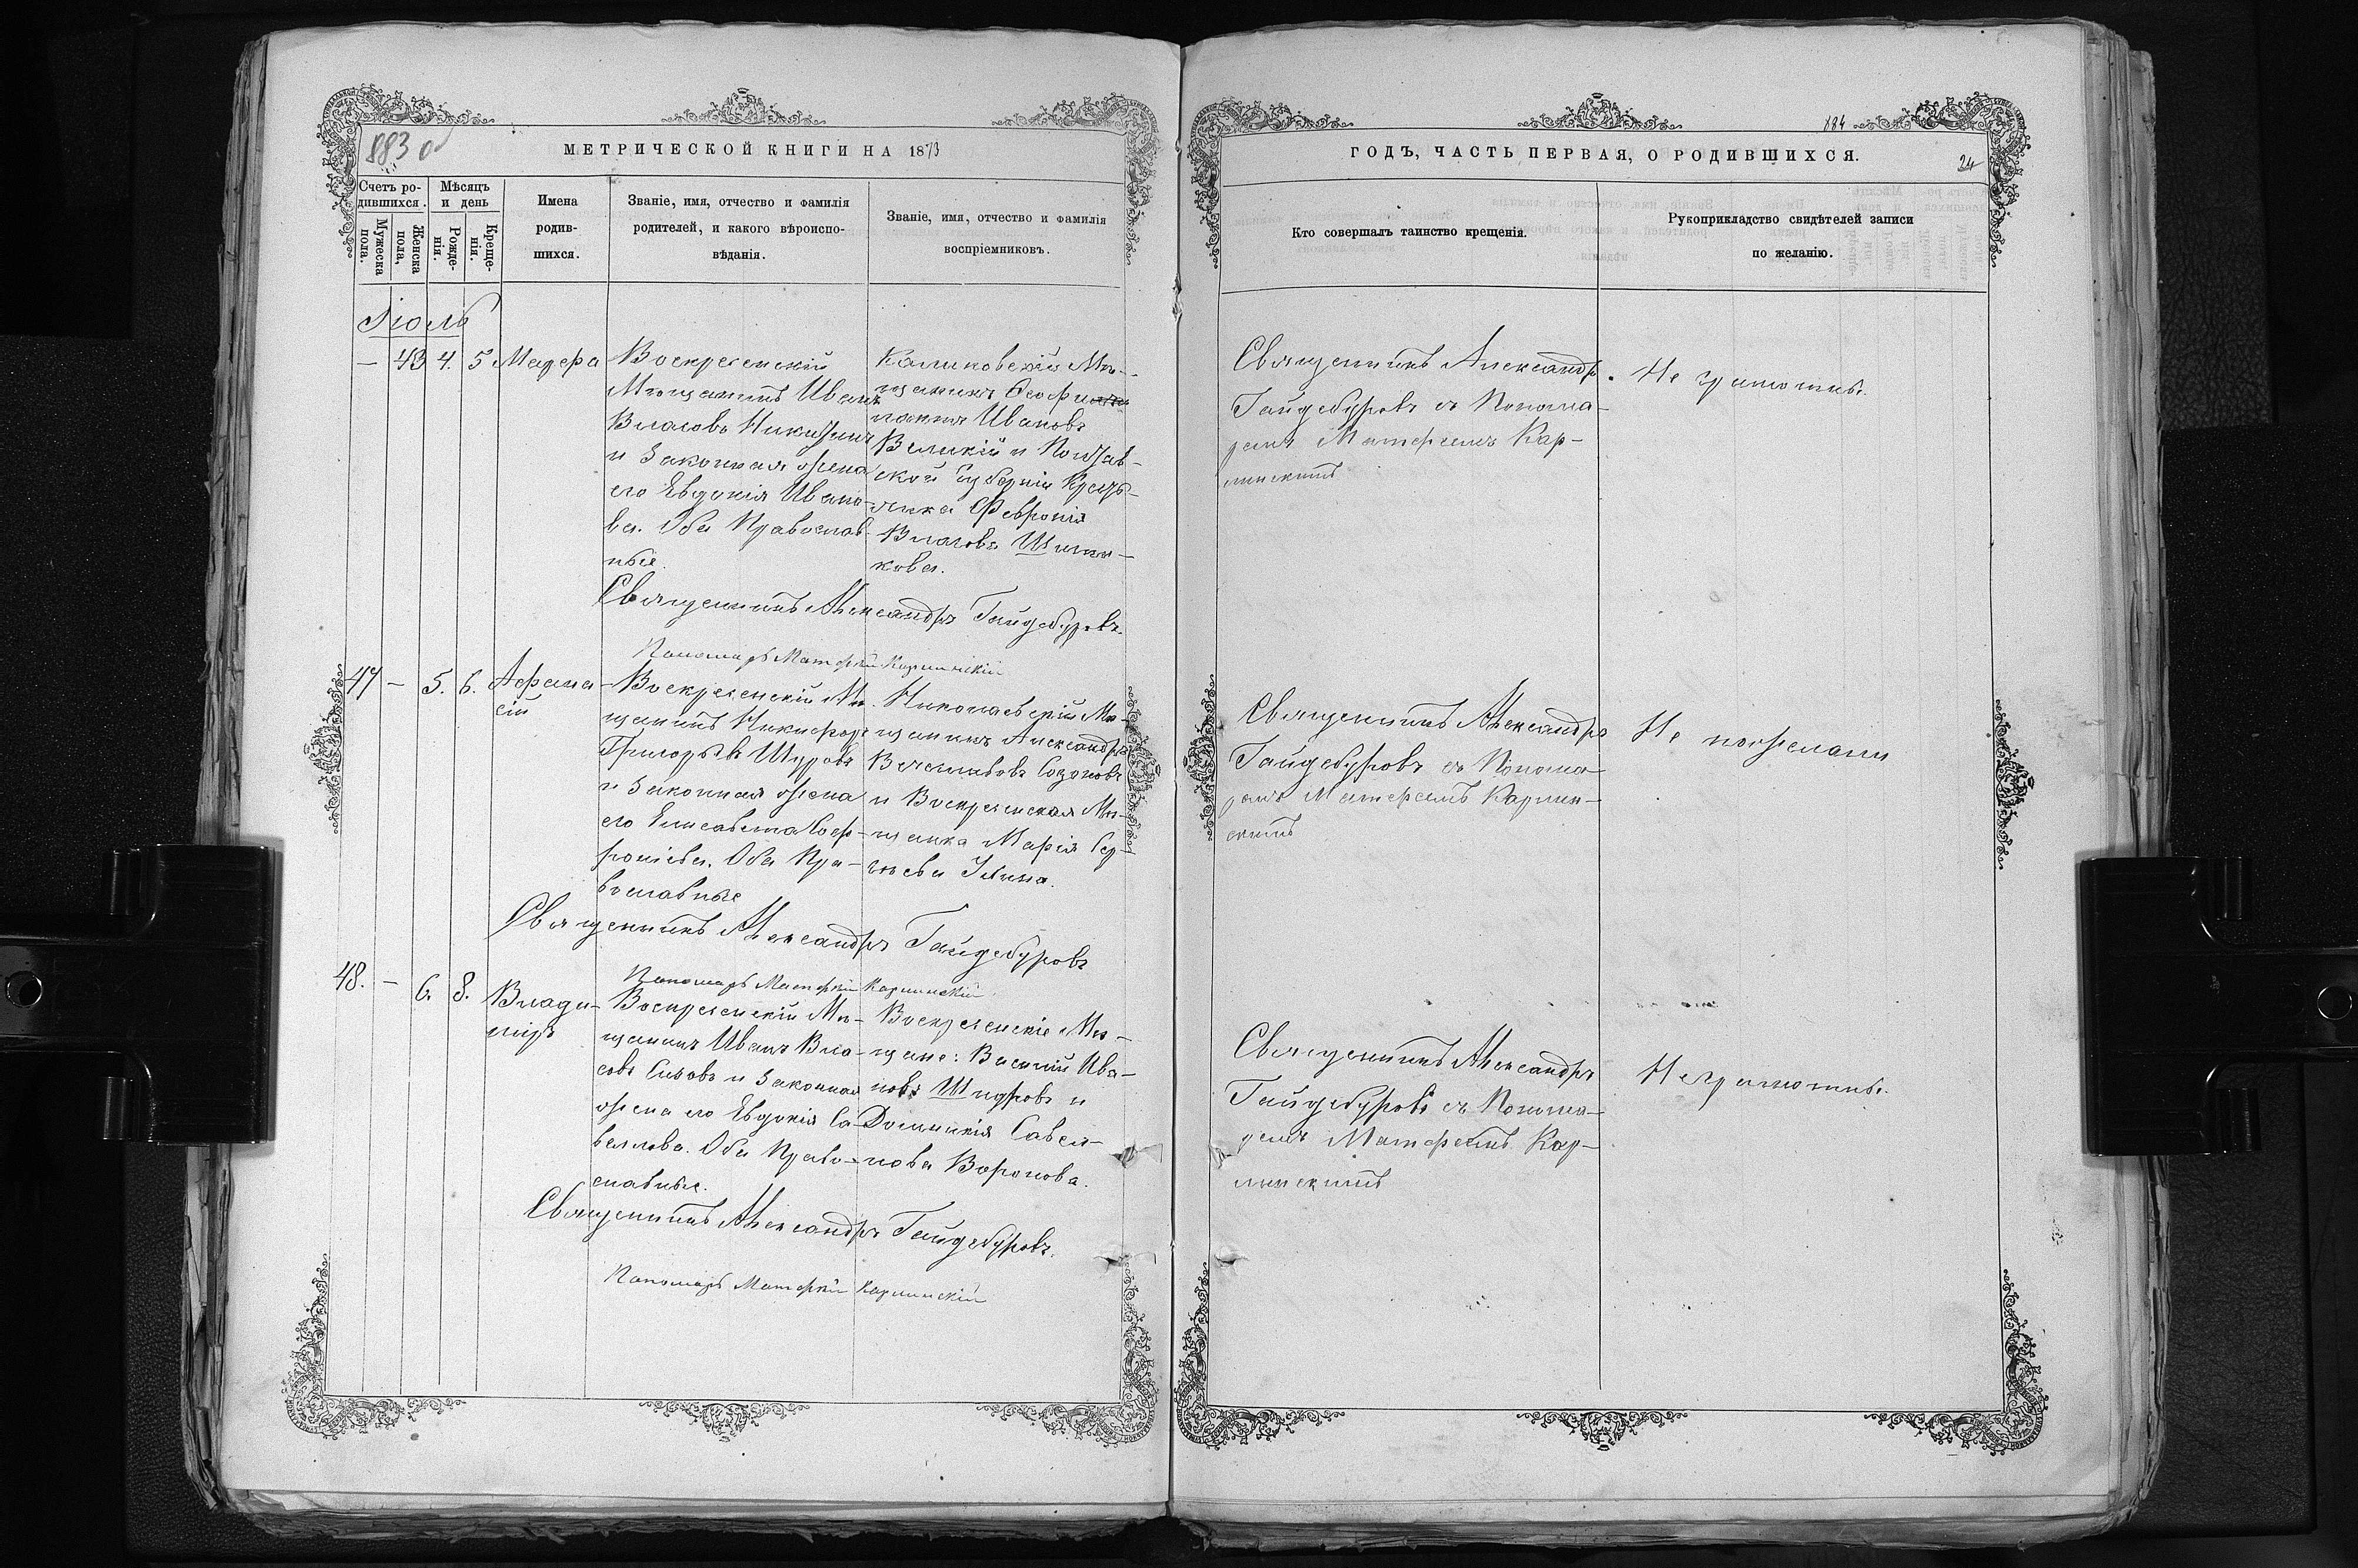 883 об
МЕТРИЧЕСКОЙ КНИГИ НА 1873
Счетъ ро-
дившихся.
Мѣсяцъ
и день
Мужеска
пола.
Женска
пола,
Рожде-
нія.
Креще-
нія.
Имена
родив-
шихся.
Званіе, имя, отчество и фамилія
родителей, и какого вѣроиспо-
вѣданія.
Званіе, имя, отчество и фамилія
воспріемниковъ.
Іюль
— 43 4. 5
Воскресенскій
Мѣщанинъ Иванъ
Власовъ
и законная жена
его Евдокія Ивано-
ва. Оба Православ-
ные.
Калиновскій Мѣ-
щанинъ
Ивановъ
Великій и Полтав-
ской Губерніи
Февронія
Власова
кова.
Священникъ Александръ Гайдебуровъ
Пономарь Матфій Карпинскій
47 — 5. 6. Афана-
сій
Воскресенскій Мѣ-
щанинъ Никифоръ
Григорьевъ Щуровъ
и законная жена
его Елисавета Соф-
роніева. Оба Пра-
вославные
Николаевскій Мѣ-
щанинъ Александръ
Созоновъ
и Воскресенская Мѣ-
щанка Марія Сер-
гѣева Ильина.
Священникъ Александръ Гайдебуровъ
Пономарь Матфій Карпинскій
48. — 6. 8. Влади-
миръ
Воскресенскій Мѣ-
щанинъ Иванъ Вла-
совъ Сизовъ и законная
жена его Евдокія Са-
веллова. Оба Право-
славные.
Воскресенскіе Мѣ-
щане: Василій Ива-
новъ Шидровъ и
Домникія Савел-
лова Воронова.
Священникъ Александръ Гайдебуровъ.
Пономарь Матфій Карпинскій
184
24
ГОДЪ, ЧАСТЬ ПЕРВАЯ, О РОДИВШИХСЯ.
Кто совершалъ таинство крещенія.
Рукоприкладство свидѣтелей записи
по желанію.
Священникъ Александръ
Гайдебуровъ съ Понома-
ремъ Матфеемъ Кар-
пинскимъ
Не грамотны.
Священникъ Александръ
Гайдебуровъ съ Понома-
ремъ Матфеемъ Карпин-
скимъ
Не пожелали
Священникъ Александръ
Гайдебуровъ съ Понома-
ремъ Матфеемъ Кар-
пинскимъ
Неграмотны.